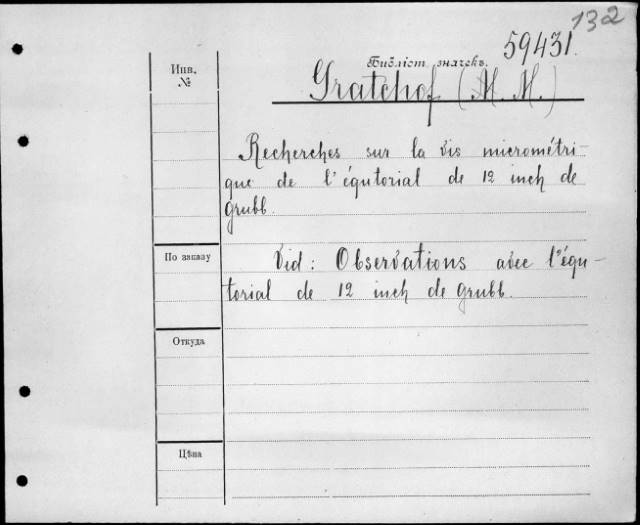 132
59431
Инв.
№
Библіст. значекъ.
Gratchof (M. M.)
Recherches sur la vis micrométri-
que de l'équtorial de 12 inch de
Grubb.
По заказу
Vid: Observations avec l'équ-
torial de 12 inch de Grubb.
Откуда
Цѣна